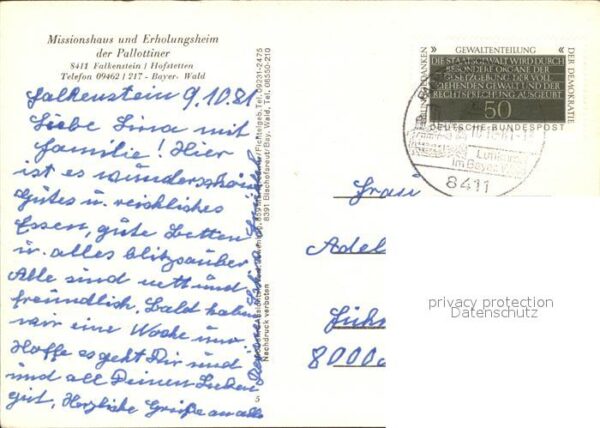 Missionshaus und Erholungsheim
der Pallottiner
8411 Falkenstein / Hofstetten
Telefon 09462 / 217 - Bayer. Wald
Falkenstein 9.10.81
Liebe Lina mit
Familie! Hier
ist es wunderschön
Gutes u. reichliches
Essen, gute Betten
u. alles blitzsauber
Alle sind nett und
freundlich. Bald haben
wir eine Woche um
Hoffe es geht Dir und
und all Deinen Lieben
gut, Herzliche Grüße an alle
Nachdruck verboten
5
8391 Bischofsreut/Bay. Wald, Tel. 08550-210
Fichtelgeb. Tel. 09231-2475
» GEWALTENTEILUNG «
DIE STAATSGEWALT WIRD DURCH
BESONDERE ORGANE DER
GESETZGEBUNG DER VOLL
ZIEHENDEN GEWALT UND DER
RECHTSPRECHUNG AUSGEÜBT
50
DEUTSCHE BUNDESPOST
DER DEMOKRATIE
im Bayer.
8411
Frau
Adel
8000
privacy protection
Datenschutz